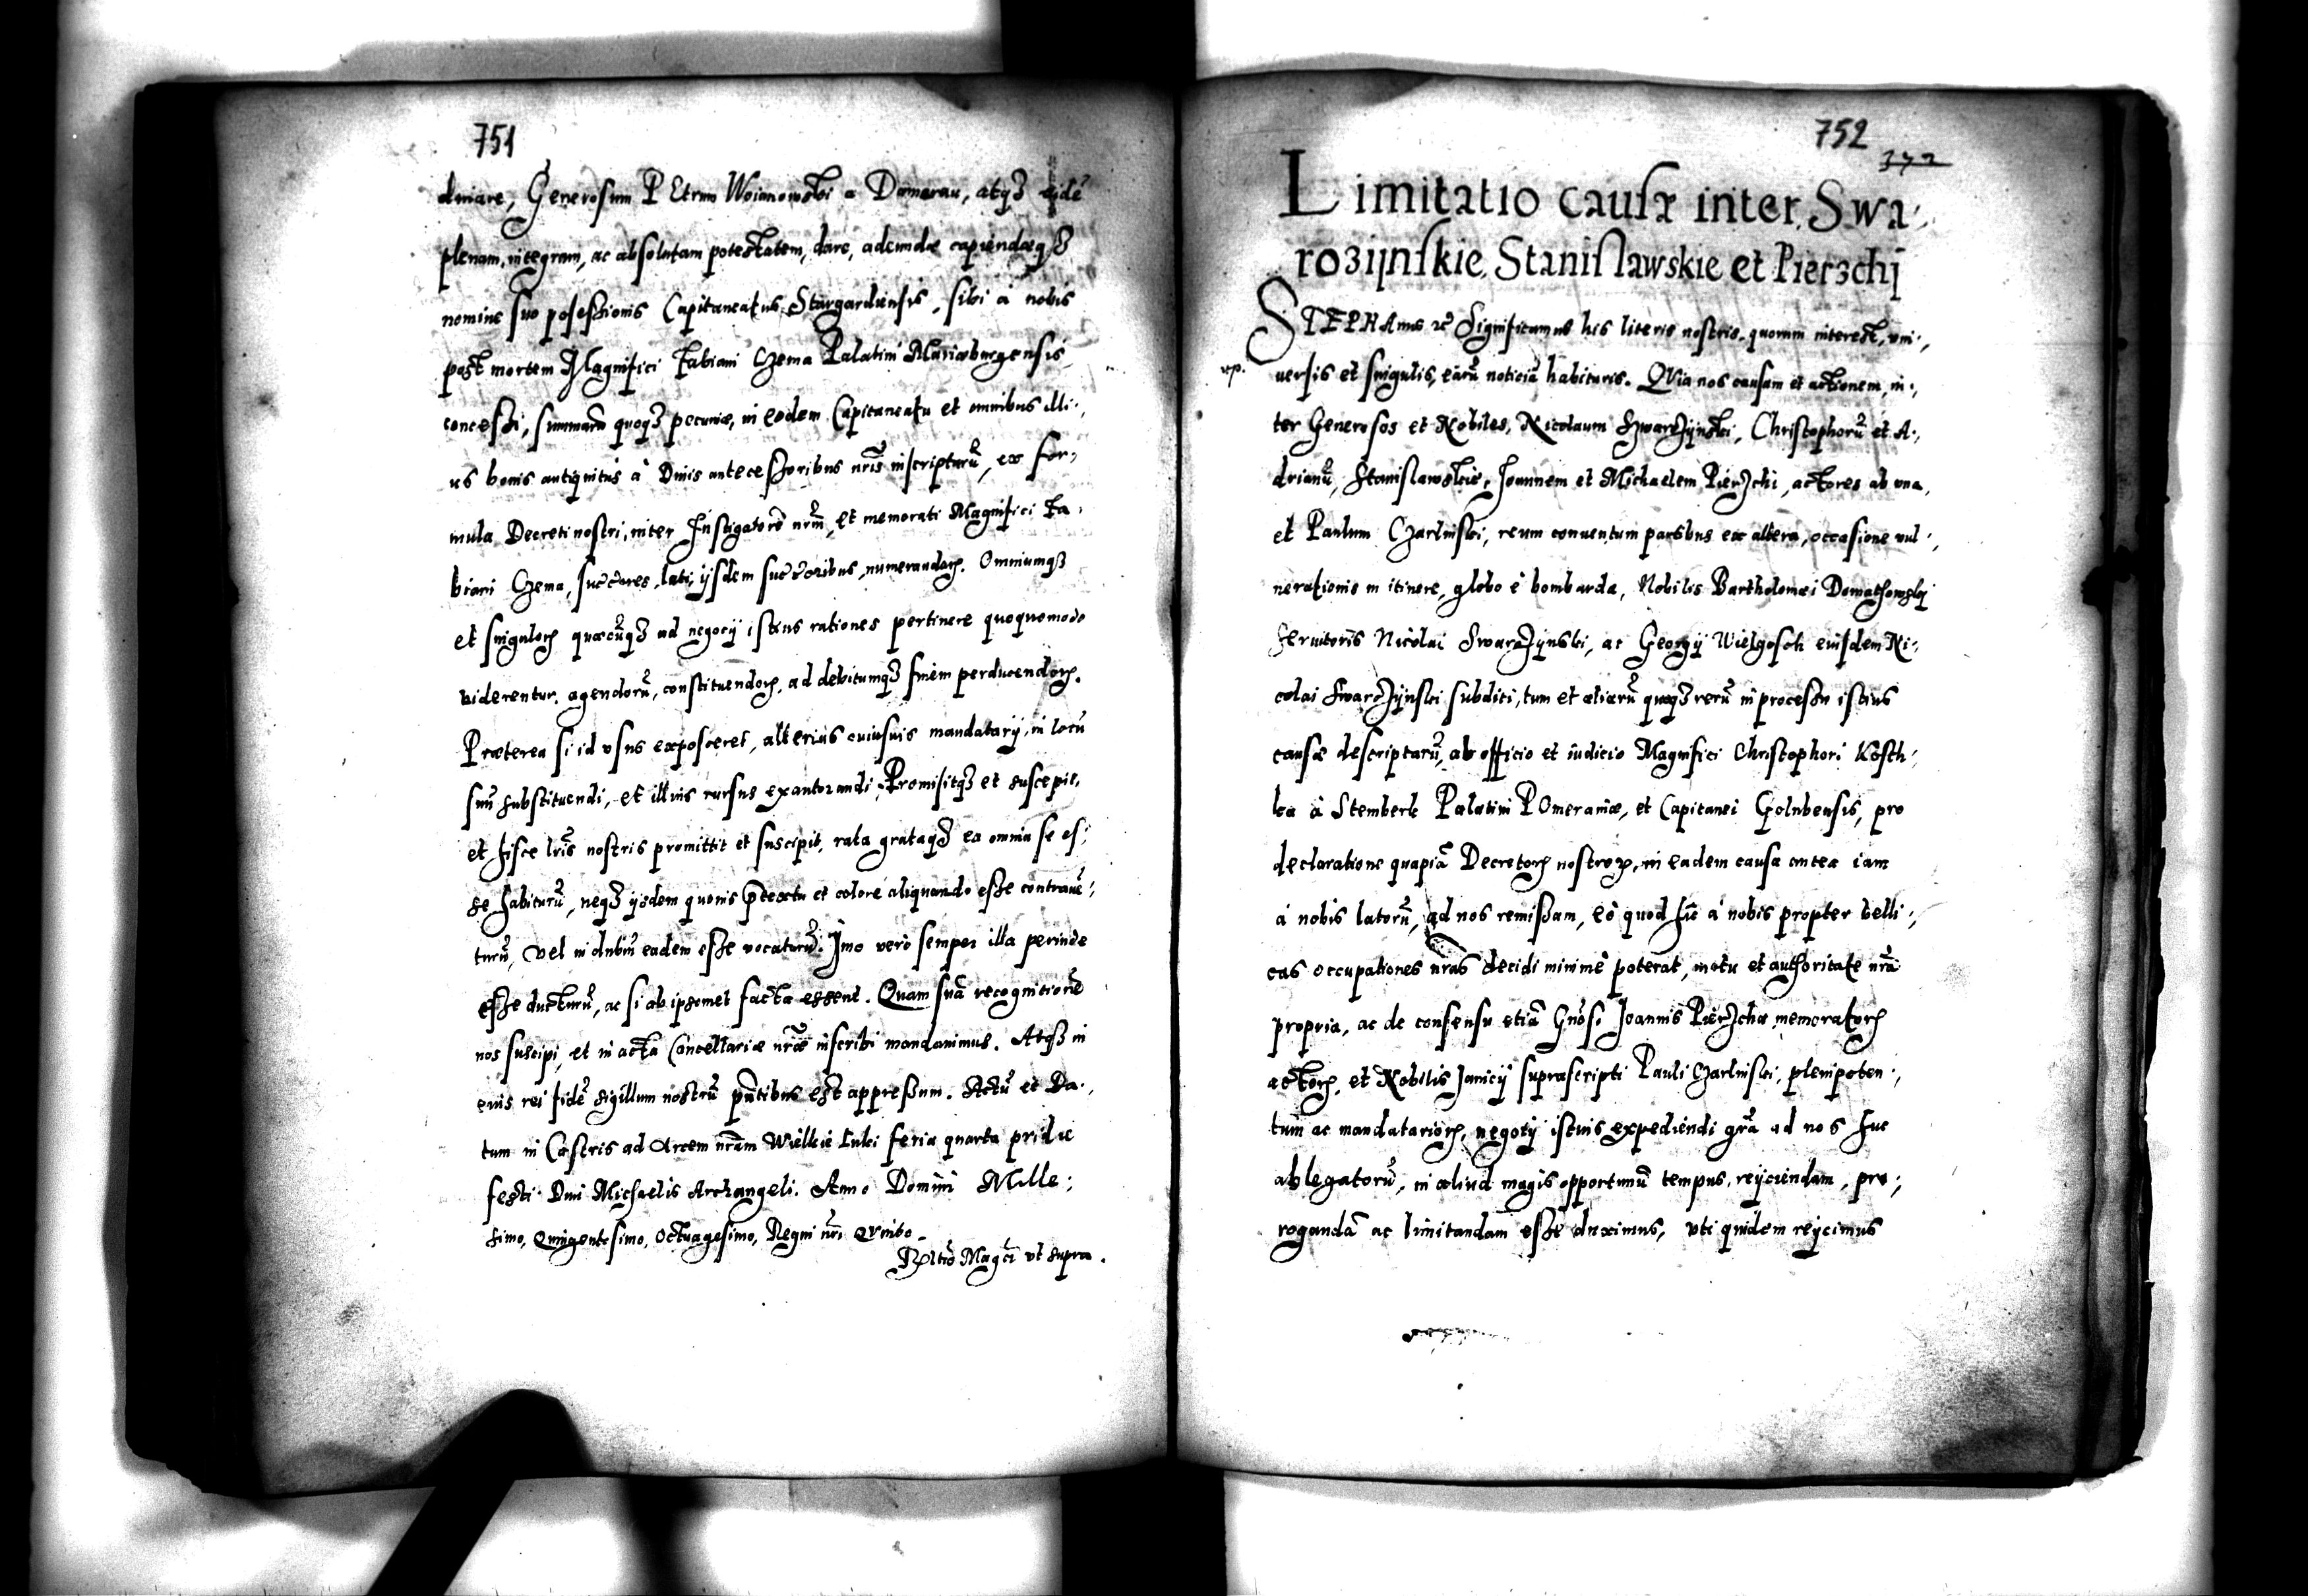 751
dinare, Generosum PEtrum Woianowski a Damerau, atqꝫ eidē
plenam, integram, ac absolutam potestatem, dare, adeundæ capiendæqꝫ
nomine suo possessionis Capitaneatus Stargardiensis, sibi à nobis
post mortem Magnifici Fabiani Czema Palatini Mariæburgensis
concessi, summam quoqꝫ pecuniæ, in eodem Capitaneatu et omnibus illi:,
us bonis antiquitus à Diuis antecessoribus nr̃is inscripturū, ex for,
mula Decreti nostri, inter Instigatorē nrm̃, et memorati Magnifici Fa,
biani Czema, succ̃ores, lati, ijsdem succ̃oribus, numerandaꝝ. Omniumqꝫ
et singuloꝝ quæcūqꝫ ad negocij istius rationes pertinere quoquomodo
viderentur, agendorū, constituendoꝝ, ad debitumqꝫ finem perducendoꝝ.
Præterea si id vsus exposceret, alterius cuiusuis mandatarij, in locū
suū substituendi, et illius rursus exautorandi, Promisitqꝫ et suscepit,
et hisce lr̃is nostris promittit et suscipit, rata grataqꝫ ea omnia se es:
se habiturū, neqꝫ ijsdem quouis p̃textu et colore aliquando esse contrauē:,
turū, vel in dubiū eadem esse vocaturū. Imo verò semper illa perinde
esse ducturū, ac si ab ipsomet facta essent. Quam suā recognitionē
nos suscipi, et in acta Cancellariæ nr̃æ inscribi mandauimus. Atqꝫ in
cuius rei fidē sigillum nostrū pñtibus est appressum. Actū et Da:,
tum in Castris ad Arcem nr̃am Wielkie Luki feria quarta pridie
festi Diui Michaelis Archangeli. Anno Domini Mille:
simo, Quingentesimo, Octuagesimo, Regni nr̃i Quinto.
Rel̃tio Mag̃ci vt supra.
752
372
Limitatio causæ inter Swa:
roзijnskie, Stanislawskie et Pierзchj
STEPHAnus ꝛc Significamus his literis nostris, quorum interest, vni:,
uersis et singulis, earū noticiā habituris. QVia nos causam et actionem, in:,
ter Generosos et Nobiles, Nicolaum Swarzijnski, Christophorū et A:,
drianū, Stanislawskie, Joannem et Michaelem Pierzchi, actores ab vna,
et Paulum Czarlinski, reum conuentum partibus ex altera, occasione vul:,
nerationis in itinere, globo è bombarda, Nobilis Bartholomæi Domathowskj
seruitoris Nicolai Swarzijnski, ac Georgij Wielgosch eiusdem Ni:,
colai Swarzijnski subditi, tum et aliarū quoqꝫ rerū in processu istius
causæ descriptarū, ab officio et iudicio Magnifici Christophori Kosth:,
ka à Stemberk Palatini POmeraniæ, et Capitanei Golubensis, pro
declaratione quapiā Decretoꝝ nostroꝝ, in eadem causa antea iam
à nobis latorū, ad nos remissam, eò quod hîc à nobis propter belli:,
cas occupationes nr̃as decidi minimè poterat, motu et authoritate nr̃a
propria, ac de consensu etiā Gñosi Joannis Pierzcha memoratoꝝ
actoꝝ, et Nobilis Janicij suprascripti Pauli Czarlinski, plenipoten:,
tum ac mandatarioꝝ, negotij istius expediendi gr̃a ad nos huc
ablegatorū, in aliud magis opportunū tempus, reijciendam, pro:,
rogandā ac limitandam esse duximus, vti quidem reijcimus